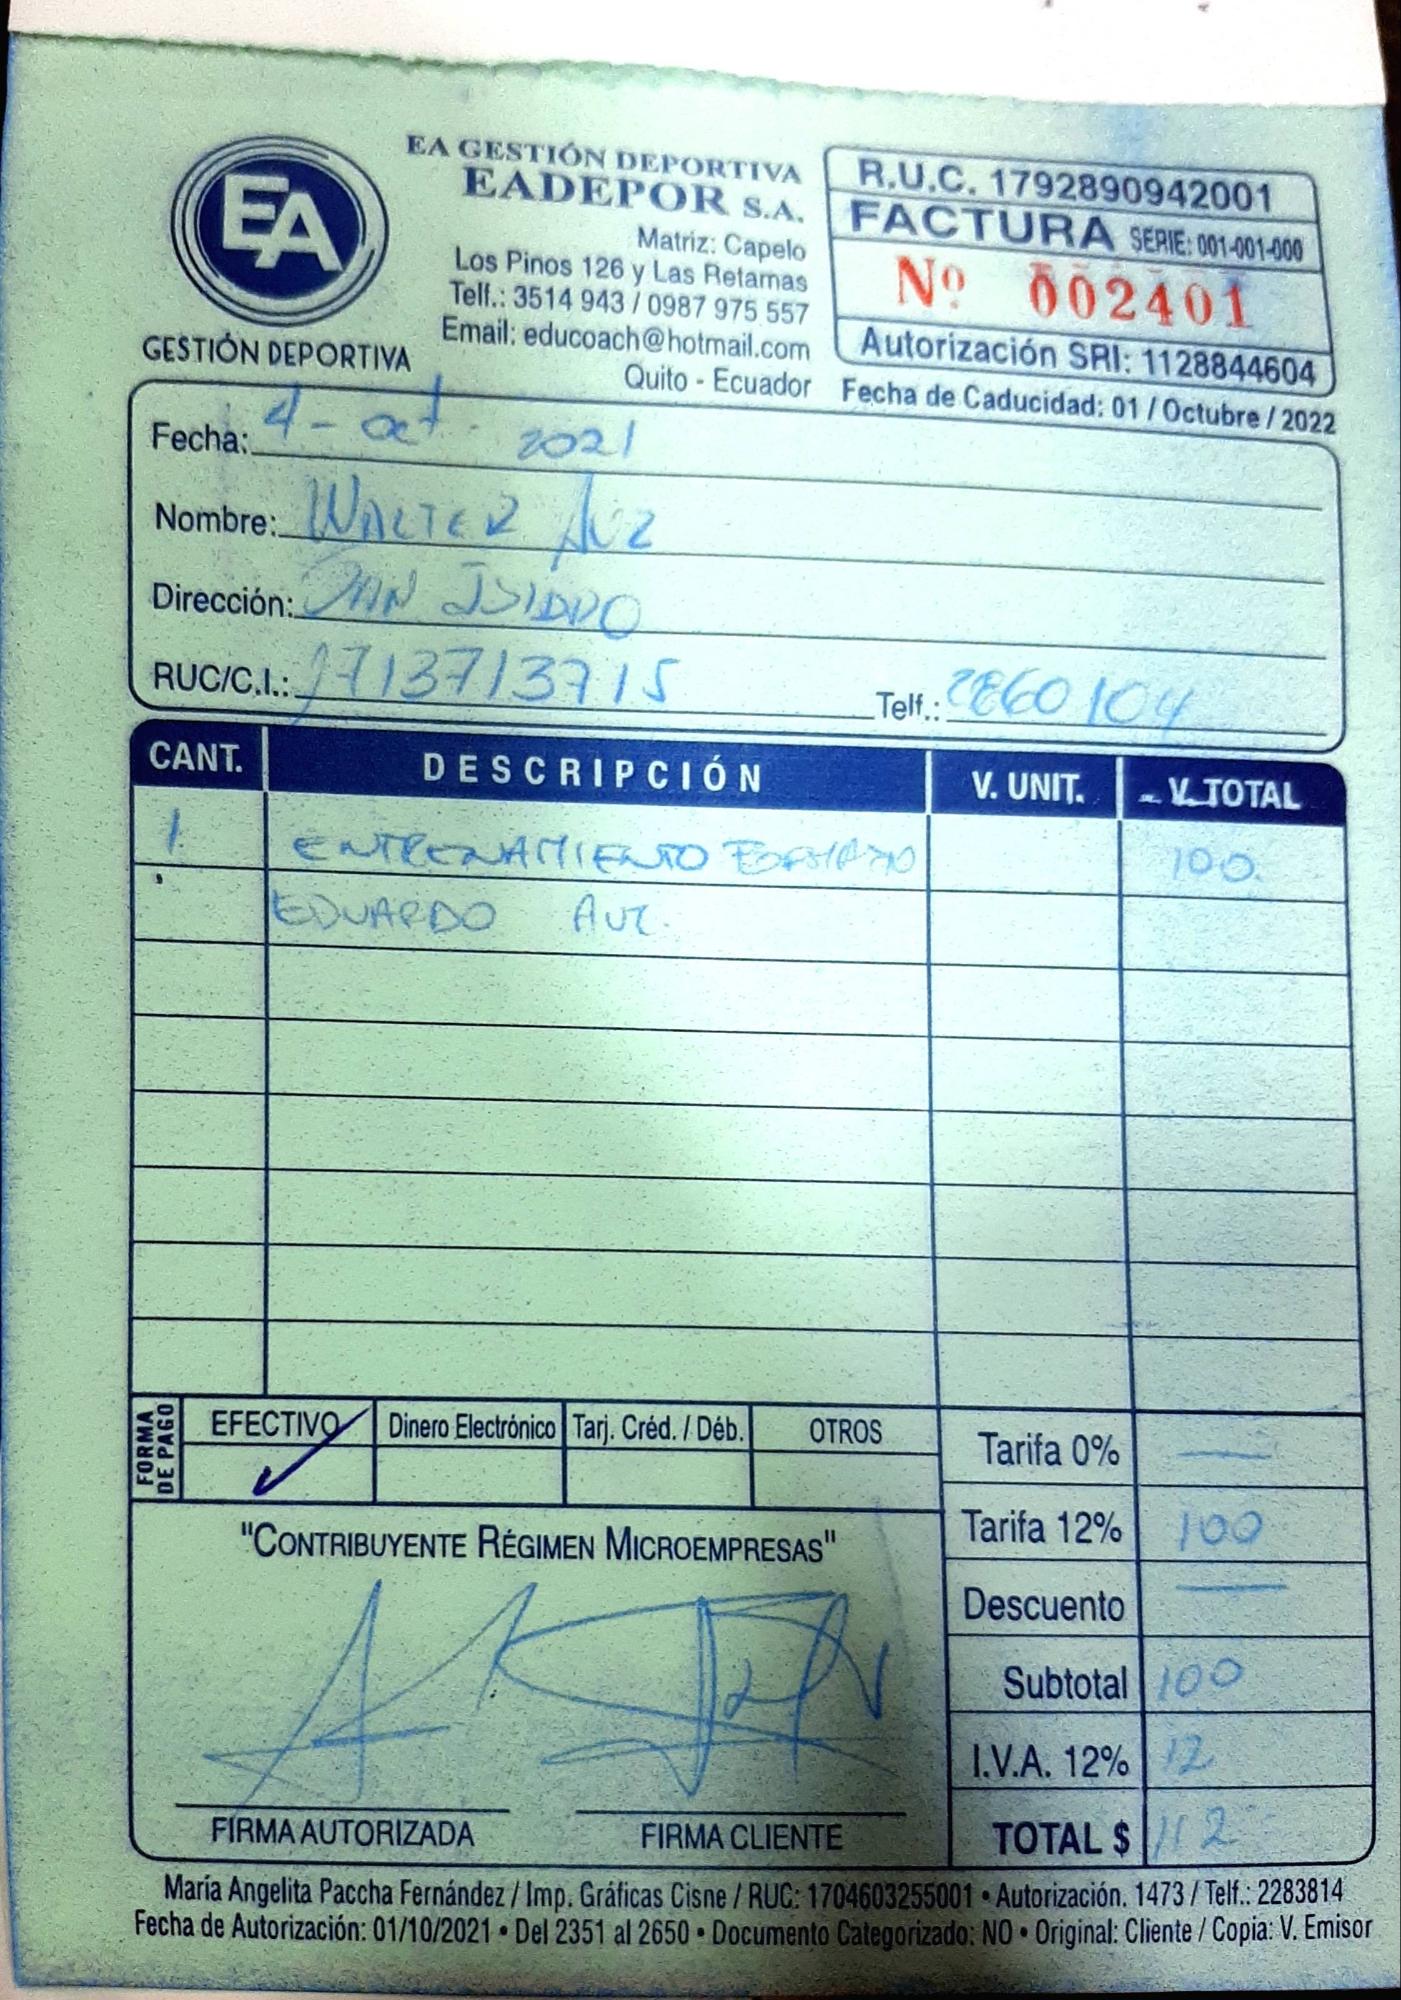 EA
GESTIÓN DEPORTIVA
EA GESTIÓN DEPORTIVA
EADEPOR S.A.
Matriz: Capelo
Los Pinos 126 y Las Retamas
Telf.: 3514 943 / 0987 975 557
Email: educoach@hotmail.com
Quito - Ecuador
R.U.C. 1792890942001
FACTURA SERIE: 001-001-000
Nº 002401
Autorización SRI: 1128844604
Fecha de Caducidad: 01 / Octubre / 2022
Fecha: 4 - oct - 2021
Nombre: WALTER AUZ
Dirección: SAN ISIDRO
RUC/C.I.: 1713713715 Telf.: 2860104
CANT. DESCRIPCIÓN V. UNIT. V. TOTAL
1 ENTRENAMIENTO 100
EDUARDO AUZ.
FORMA DE PAGO EFECTIVO Dinero Electrónico Tarj. Créd. / Déb. OTROS
Tarifa 0% —
Tarifa 12% 100
Descuento —
Subtotal 100
I.V.A. 12% 12
TOTAL $ 112
"CONTRIBUYENTE RÉGIMEN MICROEMPRESAS"
FIRMA AUTORIZADA FIRMA CLIENTE
María Angelita Paccha Fernández / Imp. Gráficas Cisne / RUC: 1704603255001 • Autorización. 1473 / Telf.: 2283814
Fecha de Autorización: 01/10/2021 • Del 2351 al 2650 • Documento Categorizado: NO • Original: Cliente / Copia: V. Emisor